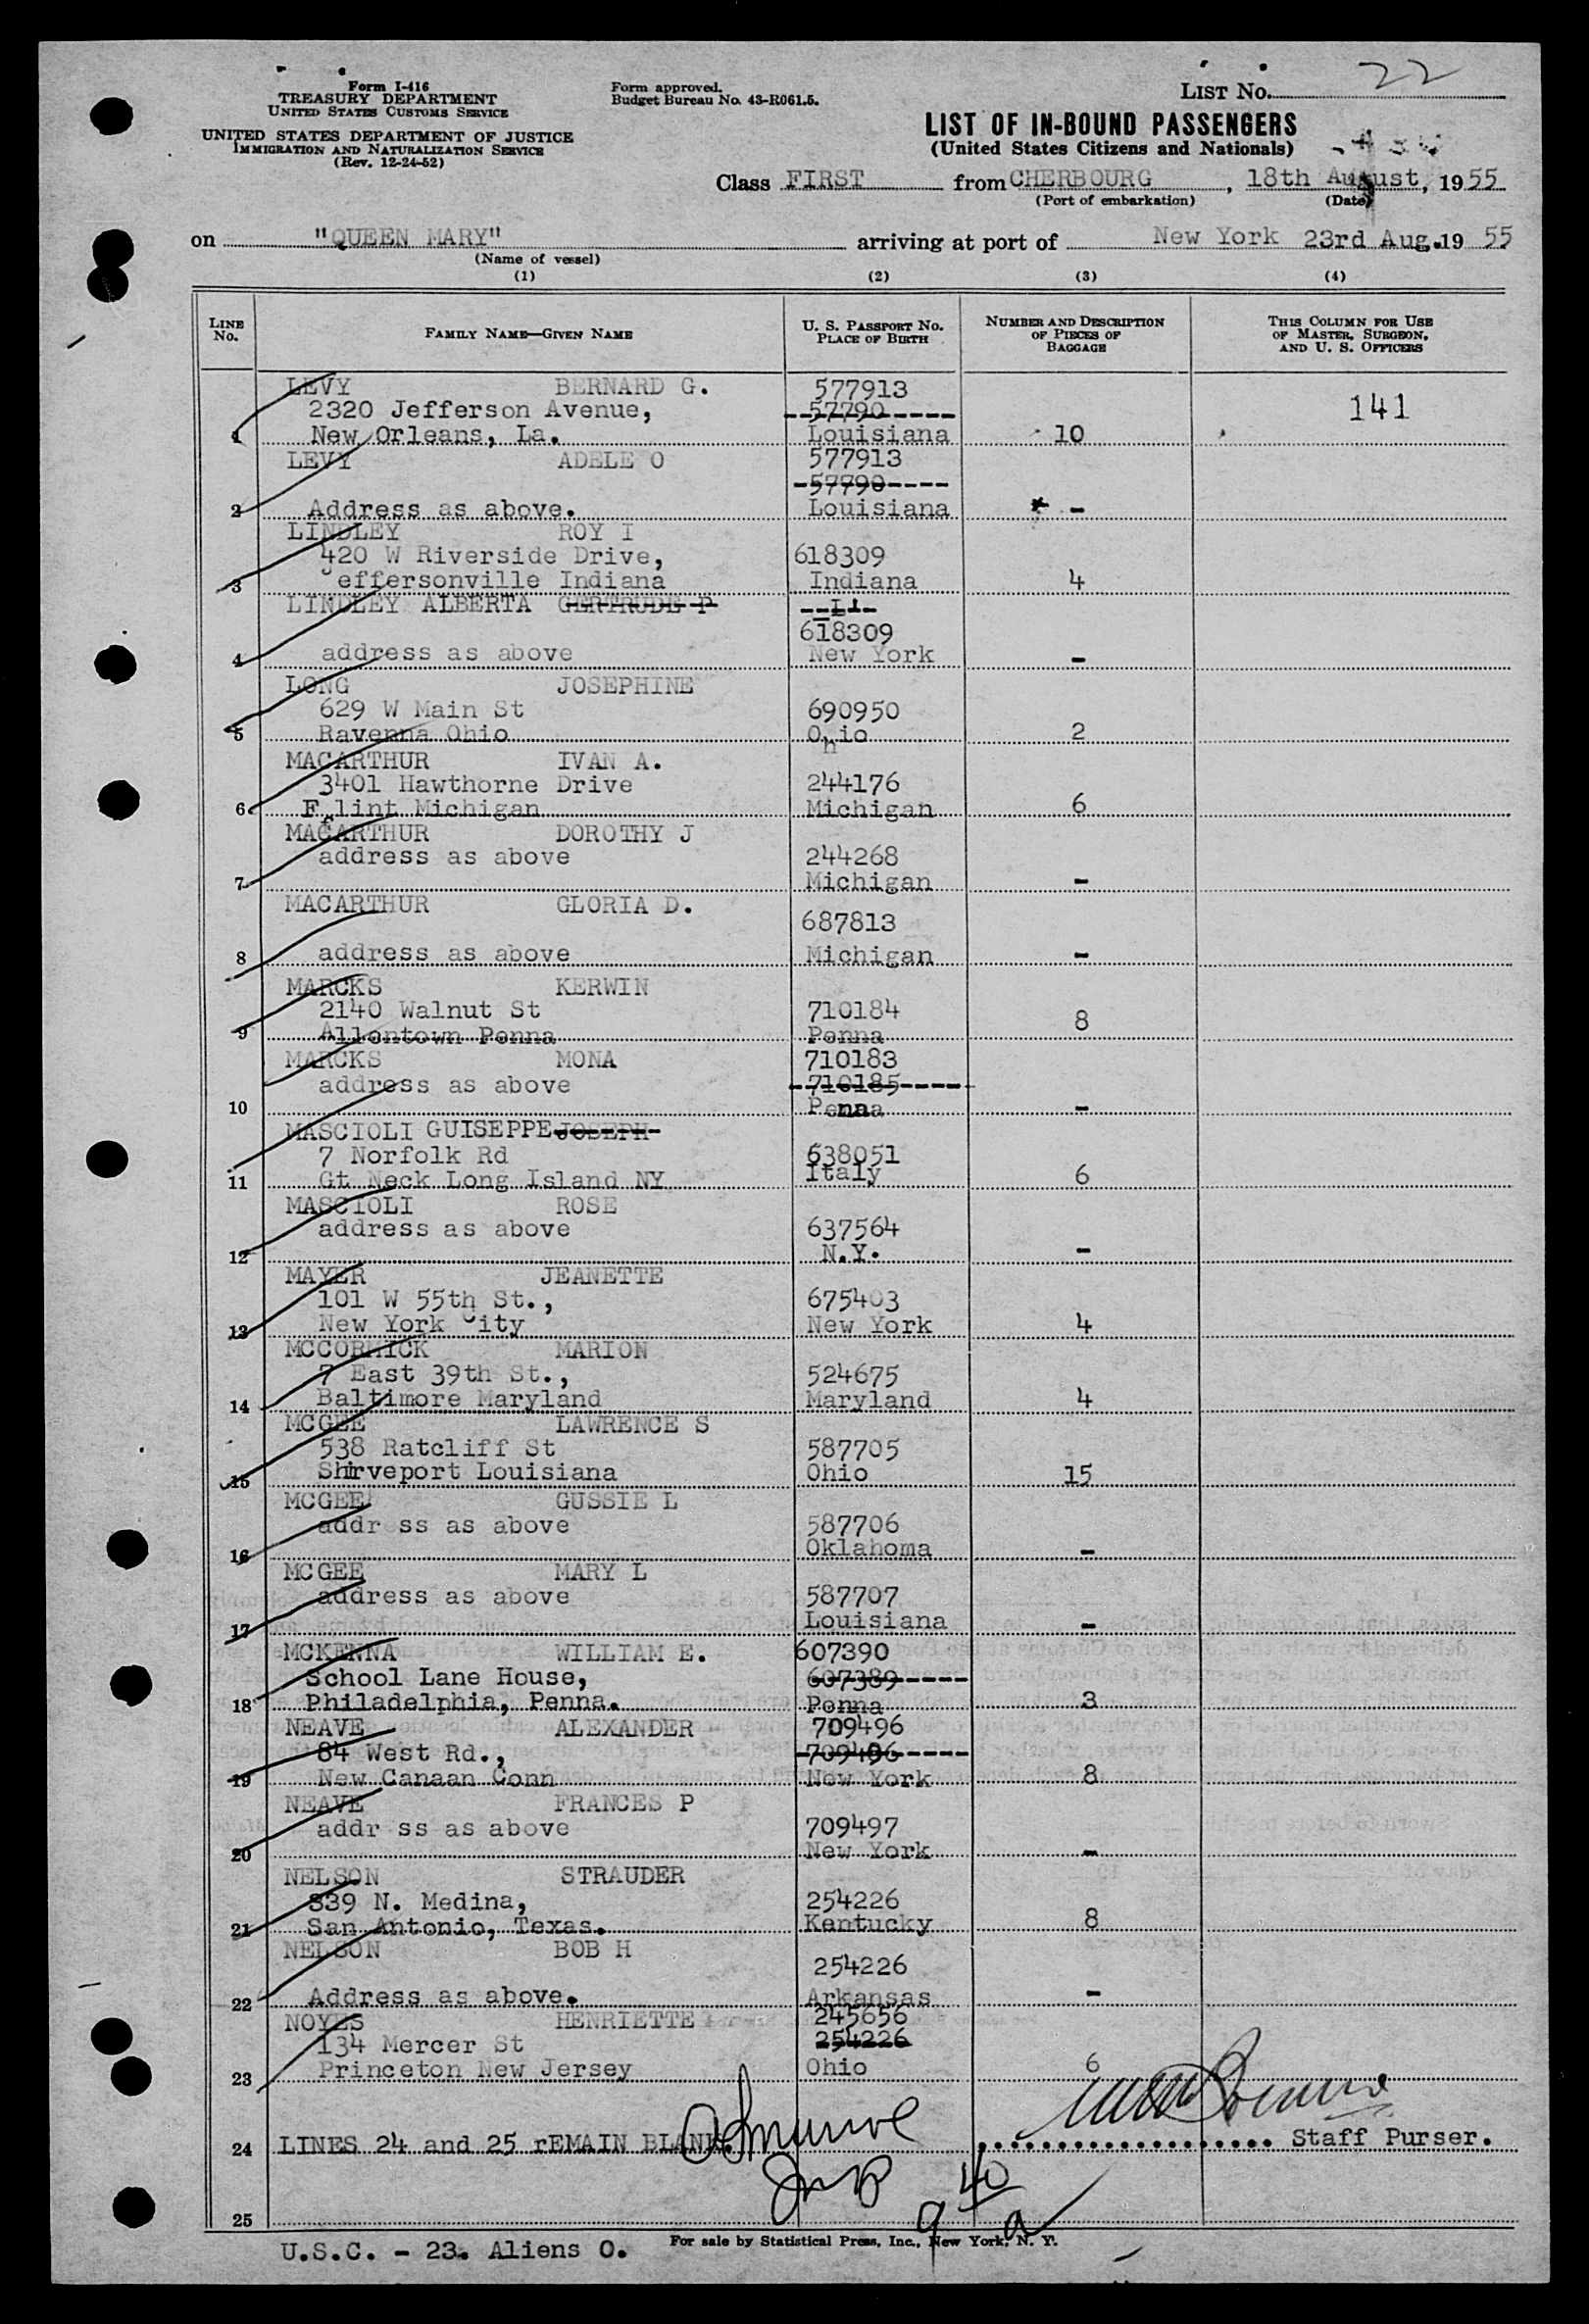 Form I-416
TREASURY DEPARTMENT
UNITED STATES CUSTOMS SERVICE
UNITED STATES DEPARTMENT OF JUSTICE
IMMIGRATION AND NATURALIZATION SERVICE
(Rev. 12-24-52)
Form approved.
Budget Bureau No. 43-R061.5.
LIST No. 22
LIST OF IN-BOUND PASSENGERS
(United States Citizens and Nationals)
Class FIRST from CHERBOURG, 18th August, 1955
(Port of embarkation) (Date)
on "QUEEN MARY" arriving at port of New York 23rd Aug. 19 55
(Name of vessel)
(1) (2) (3) (4)
LINE No. FAMILY NAME—GIVEN NAME U. S. PASSPORT NO. PLACE OF BIRTH NUMBER AND DESCRIPTION OF PIECES OF BAGGAGE THIS COLUMN FOR USE OF MASTER, SURGEON, AND U. S. OFFICERS
LEVY BERNARD G. 577913
2320 Jefferson Avenue, 57790 141
1 New Orleans, La. Louisiana 10
LEVY ADELE O 577913
57790
2 Address as above. Louisiana -
LINDLEY ROY I
420 W Riverside Drive, 618309
3 Jeffersonville Indiana Indiana 4
LINDLEY ALBERTA GERTRUDE P
618309
4 address as above New York -
LONG JOSEPHINE
629 W Main St 690950
5 Ravenna Ohio Ohio 2
MACARTHUR IVAN A.
3401 Hawthorne Drive 244176
6 Flint Michigan Michigan 6
MACARTHUR DOROTHY J
address as above 244268
7 Michigan -
MACARTHUR GLORIA D.
687813
8 address as above Michigan -
MARCKS KERWIN
2140 Walnut St 710184
9 Allentown Penna Penna 8
MARCKS MONA 710183
address as above 710185
10 Penna -
MASCIOLI GUISEPPE JOSEPH
7 Norfolk Rd 638051
11 Gt Neck Long Island NY Italy 6
MASCIOLI ROSE
address as above 637564
12 N.Y. -
MAYER JEANETTE
101 W 55th St., 675403
13 New York City New York 4
MCCORMICK MARION
7 East 39th St., 524675
14 Baltimore Maryland Maryland 4
MCGEE LAWRENCE S
538 Ratcliff St 587705
15 Shrveport Louisiana Ohio 15
MCGEE GUSSIE L
addr ss as above 587706
16 Oklahoma -
MCGEE MARY L
address as above 587707
17 Louisiana -
MCKENNA WILLIAM E. 607390
School Lane House, 607389
18 Philadelphia, Penna. Penna 3
NEAVE ALEXANDER 709496
84 West Rd., 709406
19 New Canaan Conn New York 8
NEAVE FRANCES P
addr ss as above 709497
20 New York -
NELSON STRAUDER
839 N. Medina, 254226
21 San Antonio, Texas. Kentucky 8
NELSON BOB H
254226
22 Address as above. Arkansas -
NOYES HENRIETTE 245656
134 Mercer St 254226
23 Princeton New Jersey Ohio 6
24 LINES 24 and 25 rEMAIN BLANK. Staff Purser.
9 40 a
25
For sale by Statistical Press, Inc., New York, N. Y.
U.S.C. - 23. Aliens 0.